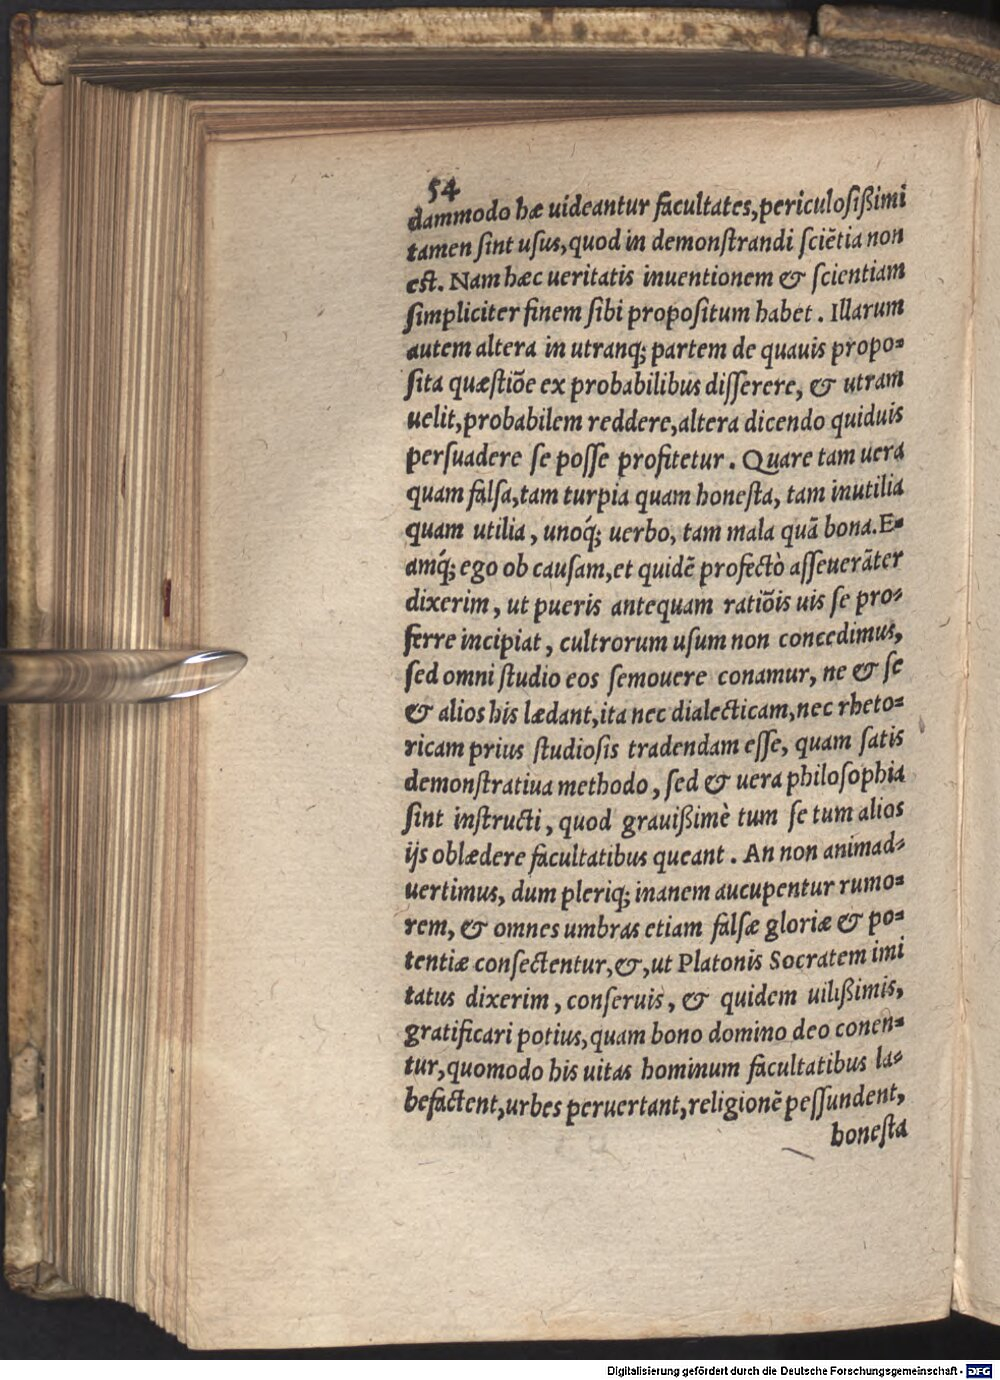 54
dammodo hæ uideantur facultates,periculosißimi
tamen ſint uſus,quod in demonſtrandi ſciẽtia non
eſt. Nam hæc ueritatis inuentionem & ſcientiam
ſimpliciter finem ſibi propoſitum habet. Illarum
autem altera in utranq; partem de quauis propo=
ſita quæſtiõe ex probabilibus diſſerere, & utram
uelit,probabilem reddere,altera dicendo quiduis
perſuadere ſe poſſe profitetur. Quare tam uera
quam falſa,tam turpia quam honeſta, tam inutilia
quam utilia, unoq́; uerbo, tam mala quã bona.E=
amq́; ego ob cauſam,et quidẽ profectò aſſeuerãter
dixerim, ut pueris antequam ratiõis uis ſe pro=
ferre incipiat, cultrorum uſum non concedimus,
ſed omni ſtudio eos ſemouere conamur, ne & ſe
& alios his lædant,ita nec dialecticam,nec rheto=
ricam prius ſtudioſis tradendam eſſe, quam ſatis
demonſtratiua methodo, ſed & uera philoſophia
ſint inſtructi, quod grauißimè tum ſe tum alios
ijs oblædere facultatibus queant. An non animad=
uertimus, dum pleriq; inanem aucupentur rumo=
rem, & omnes umbras etiam falſæ gloriæ & po=
tentiæ conſectentur,&,ut Platonis Socratem imi
tatus dixerim, conſeruis, & quidem uilißimis,
gratificari potius,quam bono domino deo conen=
tur,quomodo his uitas hominum facultatibus la=
befactent,urbes peruertant,religionẽ peſſundent,
honeſta
Digitalisierung gefördert durch die Deutsche Forschungsgemeinschaft - DFG